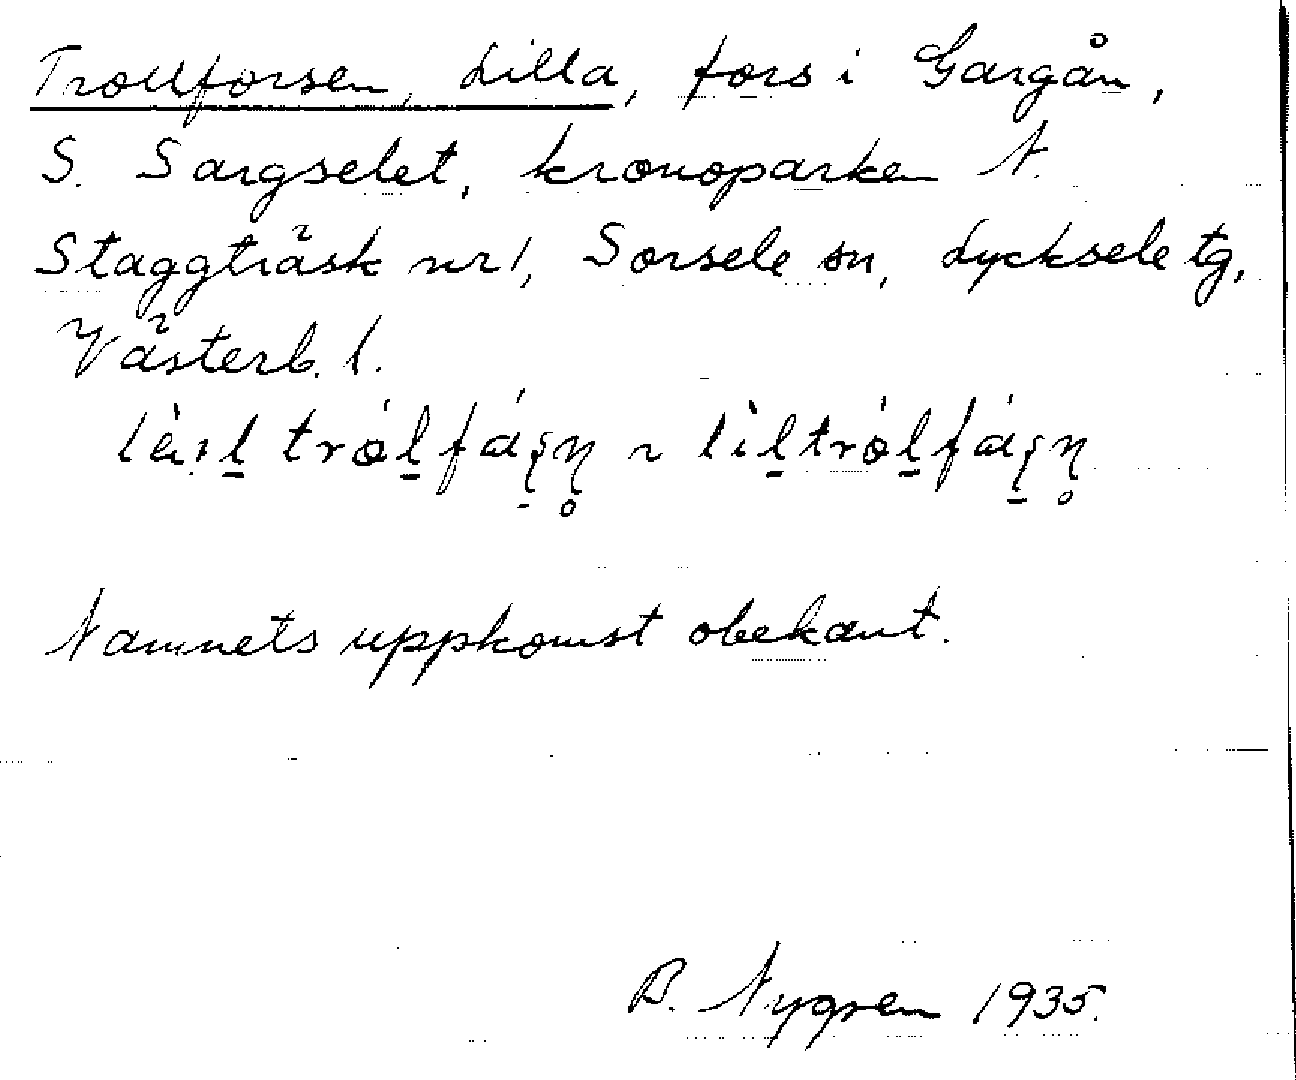 Trollforsen, Lilla, fors i Gargån,
S. Sargselet, kronoparken N.
Staggträsk nr 1, Sorsele sn, Lycksele tg,
Västerb. l.
Namnets uppkomst obekant.
B. Nygren 1935.